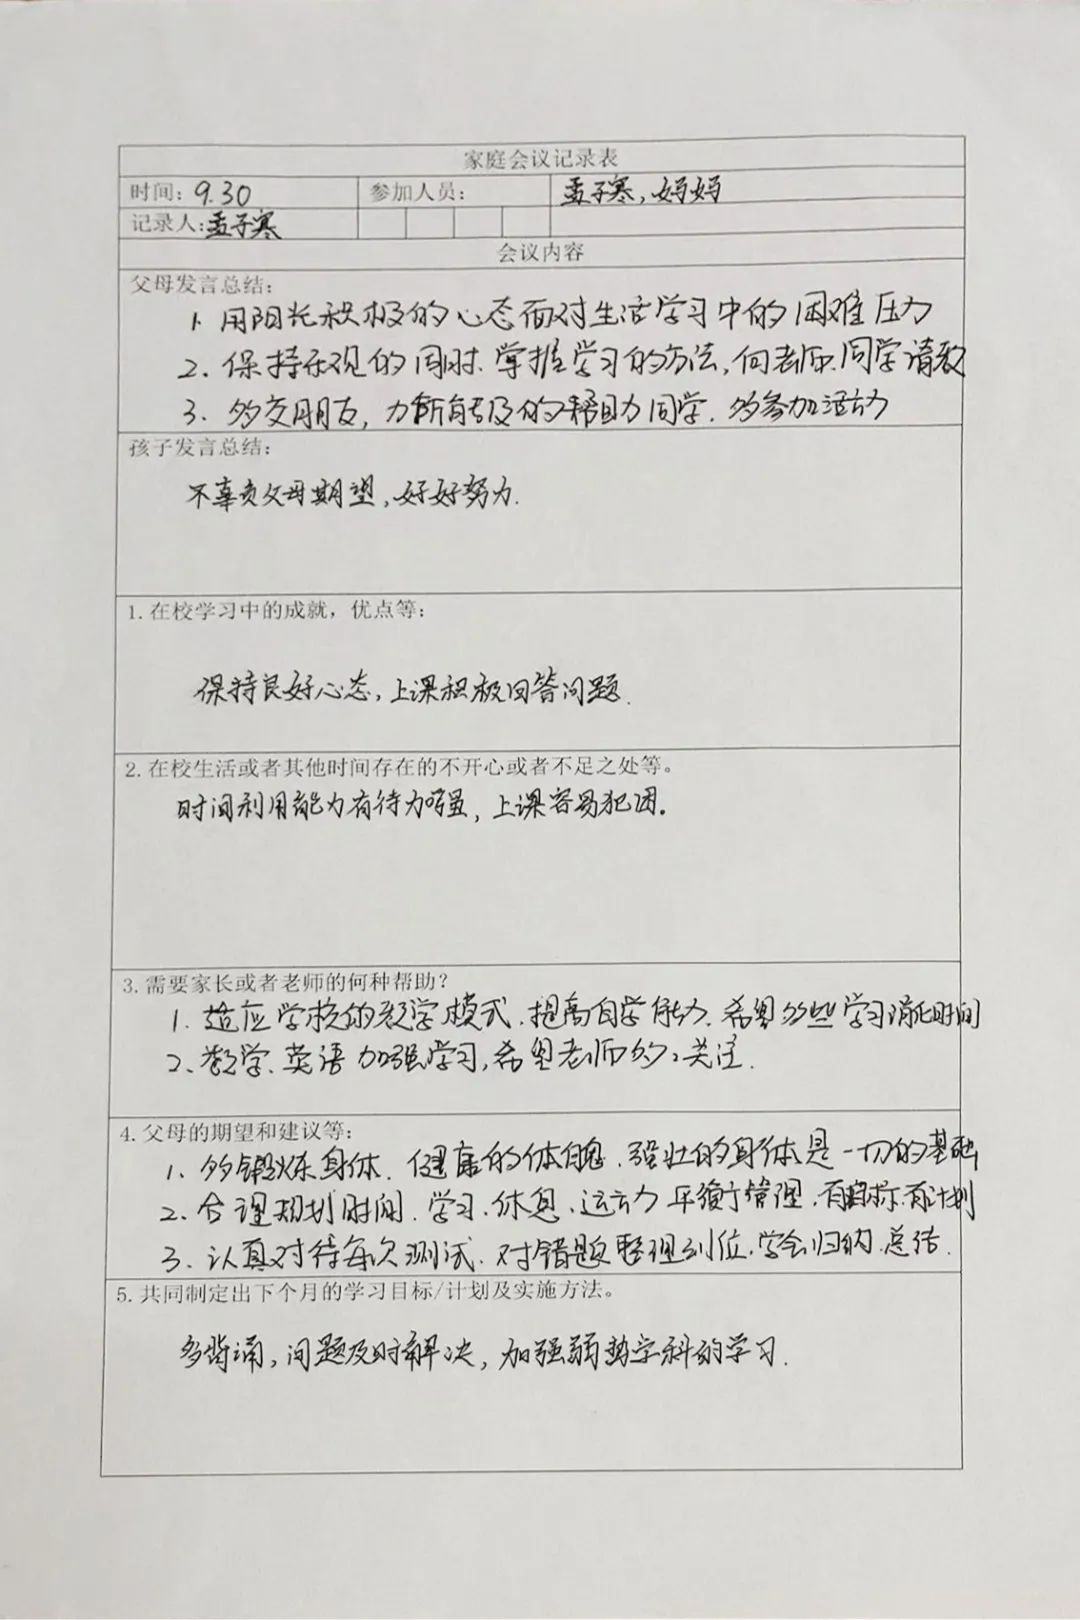 家庭会议记录表
时间: 9.30 参加人员: 孟子寒,妈妈
记录人:孟子寒
会议内容
父母发言总结:
1. 用阳光积极的心态面对生活学习中的困难压力
2. 保持乐观的同时.掌握学习的方法,向老师.同学请教
3. 多交朋友, 力所能及的帮助同学. 多参加活动
孩子发言总结:
不辜负父母期望,好好努力.
1. 在校学习中的成就，优点等:
保持良好心态,上课积极回答问题.
2. 在校生活或者其他时间存在的不开心或者不足之处等。
时间利用能力有待加强, 上课容易犯困.
3. 需要家长或者老师的何种帮助?
1. 适应学校的教学模式.提高自学能力.希望多些学习消化时间
2. 数学.英语加强学习,希望老师多关注.
4. 父母的期望和建议等:
1. 多锻炼身体. 健康的体魄.强壮的身体是一切的基础
2. 合理规划时间.学习.休息.运动平衡管理.有目标.有计划
3. 认真对待每次测试.对错题整理到位.学会归纳.总结.
5. 共同制定出下个月的学习目标/计划及实施方法。
多背诵, 问题及时解决, 加强弱势学科的学习.